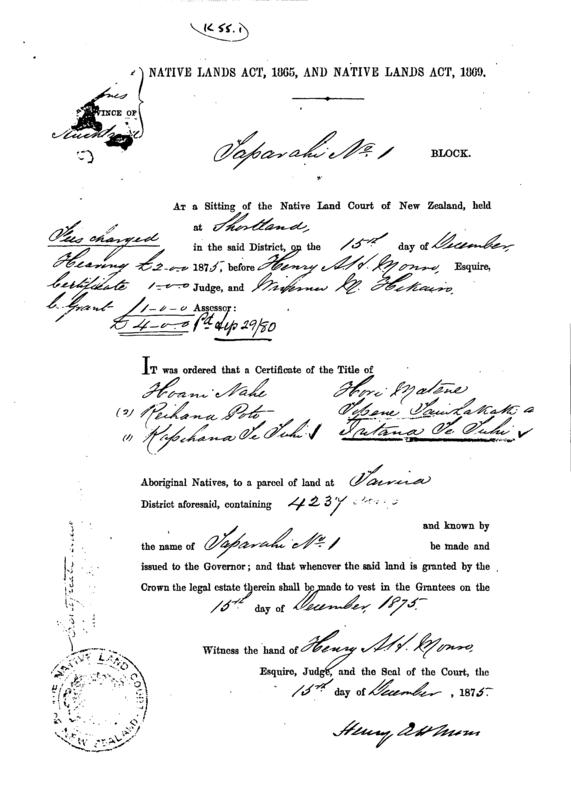 K 55.1
NATIVE LANDS ACT, 1865, AND NATIVE LANDS ACT, 1869.
VINCE OF
Taparahi No. 1 BLOCK.
AT a Sitting of the Native Land Court of New Zealand, held
at Shortland,
Fees charged
in the said District, on the 15th day of December,
Hearing £2-0-0 1875, before Henry A H Monro, Esquire,
Certificate 1-0-0 Judge, and
C. Grant 1-0-0 Assessor:
£4-0-0 Pd 29/80
IT was ordered that a Certificate of the Title of
Hoani Nahe Hori Matene
(2) Reihana Poto
(1) Te Tuhi Te Tuhi
Aboriginal Natives, to a parcel of land at Tairua
District aforesaid, containing 4237 acres
and known by
the name of Taparahi No. 1 be made and
issued to the Governor; and that whenever the said land is granted by the
Crown the legal estate therein shall be made to vest in the Grantees on the
15th day of December, 1875.
Witness the hand of Henry A H Monro,
Esquire, Judge, and the Seal of the Court, the
15th day of December, 1875.
Henry A H Monro
THE NATIVE LAND COURT OF NEW ZEALAND